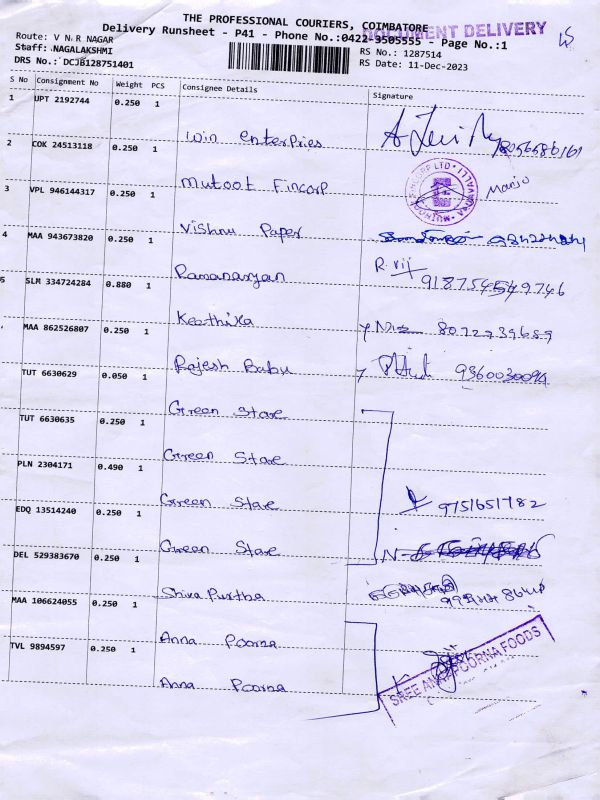 THE PROFESSIONAL COURIERS, COIMBATORE
Delivery Runsheet - P41 - Phone No.:0422-3505555 - Page No.:1
DOCUMENT DELIVERY
Route: V N R NAGAR
Staff: NAGALAKSHMI
DRS No.: DCJB128751401
RS No.: 1287514
RS Date: 11-Dec-2023
S No Consignment No Weight PCS Consignee Details Signature
1 UPT 2192744 0.250 1
Win enterpries
8056586161
2 COK 24513118 0.250 1
Mutoot Fincorp
Manju
3 VPL 946144317 0.250 1
Vishnu Paper
4 MAA 943673820 0.250 1
Ramanaryan
R. vij
5 SLM 334724284 0.880 1
Keerthika
8072739689
MAA 862526807 0.250 1
Rajesh Babu
9360030094
TUT 6630629 0.050 1
Green Stare
TUT 6630635 0.250 1
Green Stare
PLN 2304171 0.490 1
Green Stare
9751651782
EDQ 13514240 0.250 1
Green Stare
DEL 529383670 0.250 1
Shiva Purtha
MAA 106624055 0.250 1
Anna Poorna
TVL 9894597 0.250 1
Anna Poorna
SREE ANNAPOORNA FOODS